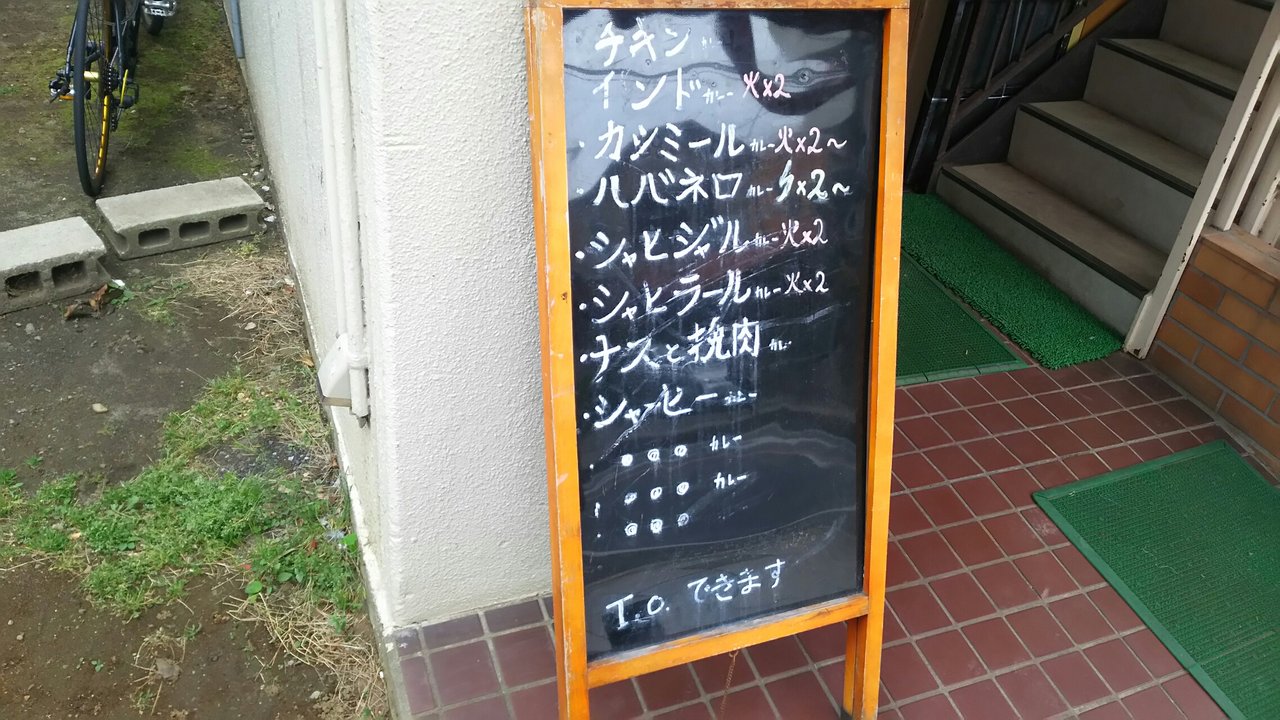 チキンカレー
インドカレー 火×2
・カシミールカレー火×2～
・ハバネロカレー 〃×2～
・シャヒジャルカレー火×2
・シャヒラールカレー火×2
・ナスと挽肉カレー
・シャヒーカレー
・●◎○カレー
●◎◎カレー
・◎◎◎
T.O. できます